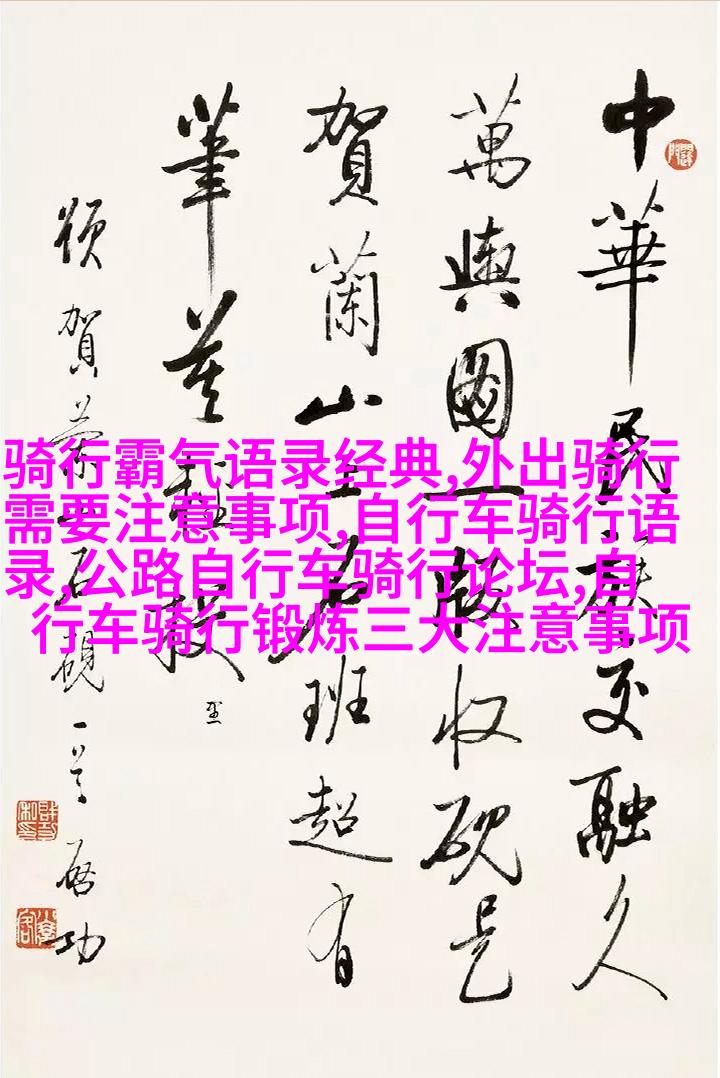 骑行霸气语录经典,外出骑行
需要注意事项,自行车骑行语
录,公路自行车骑行论坛,自
行车骑行锻炼三大注意事项
中華民族交融久
萬輿圖一版收硯是
賀蘭山上石班超有
筆莫輕投 里
頌賀蘭山石硯一首 啓功